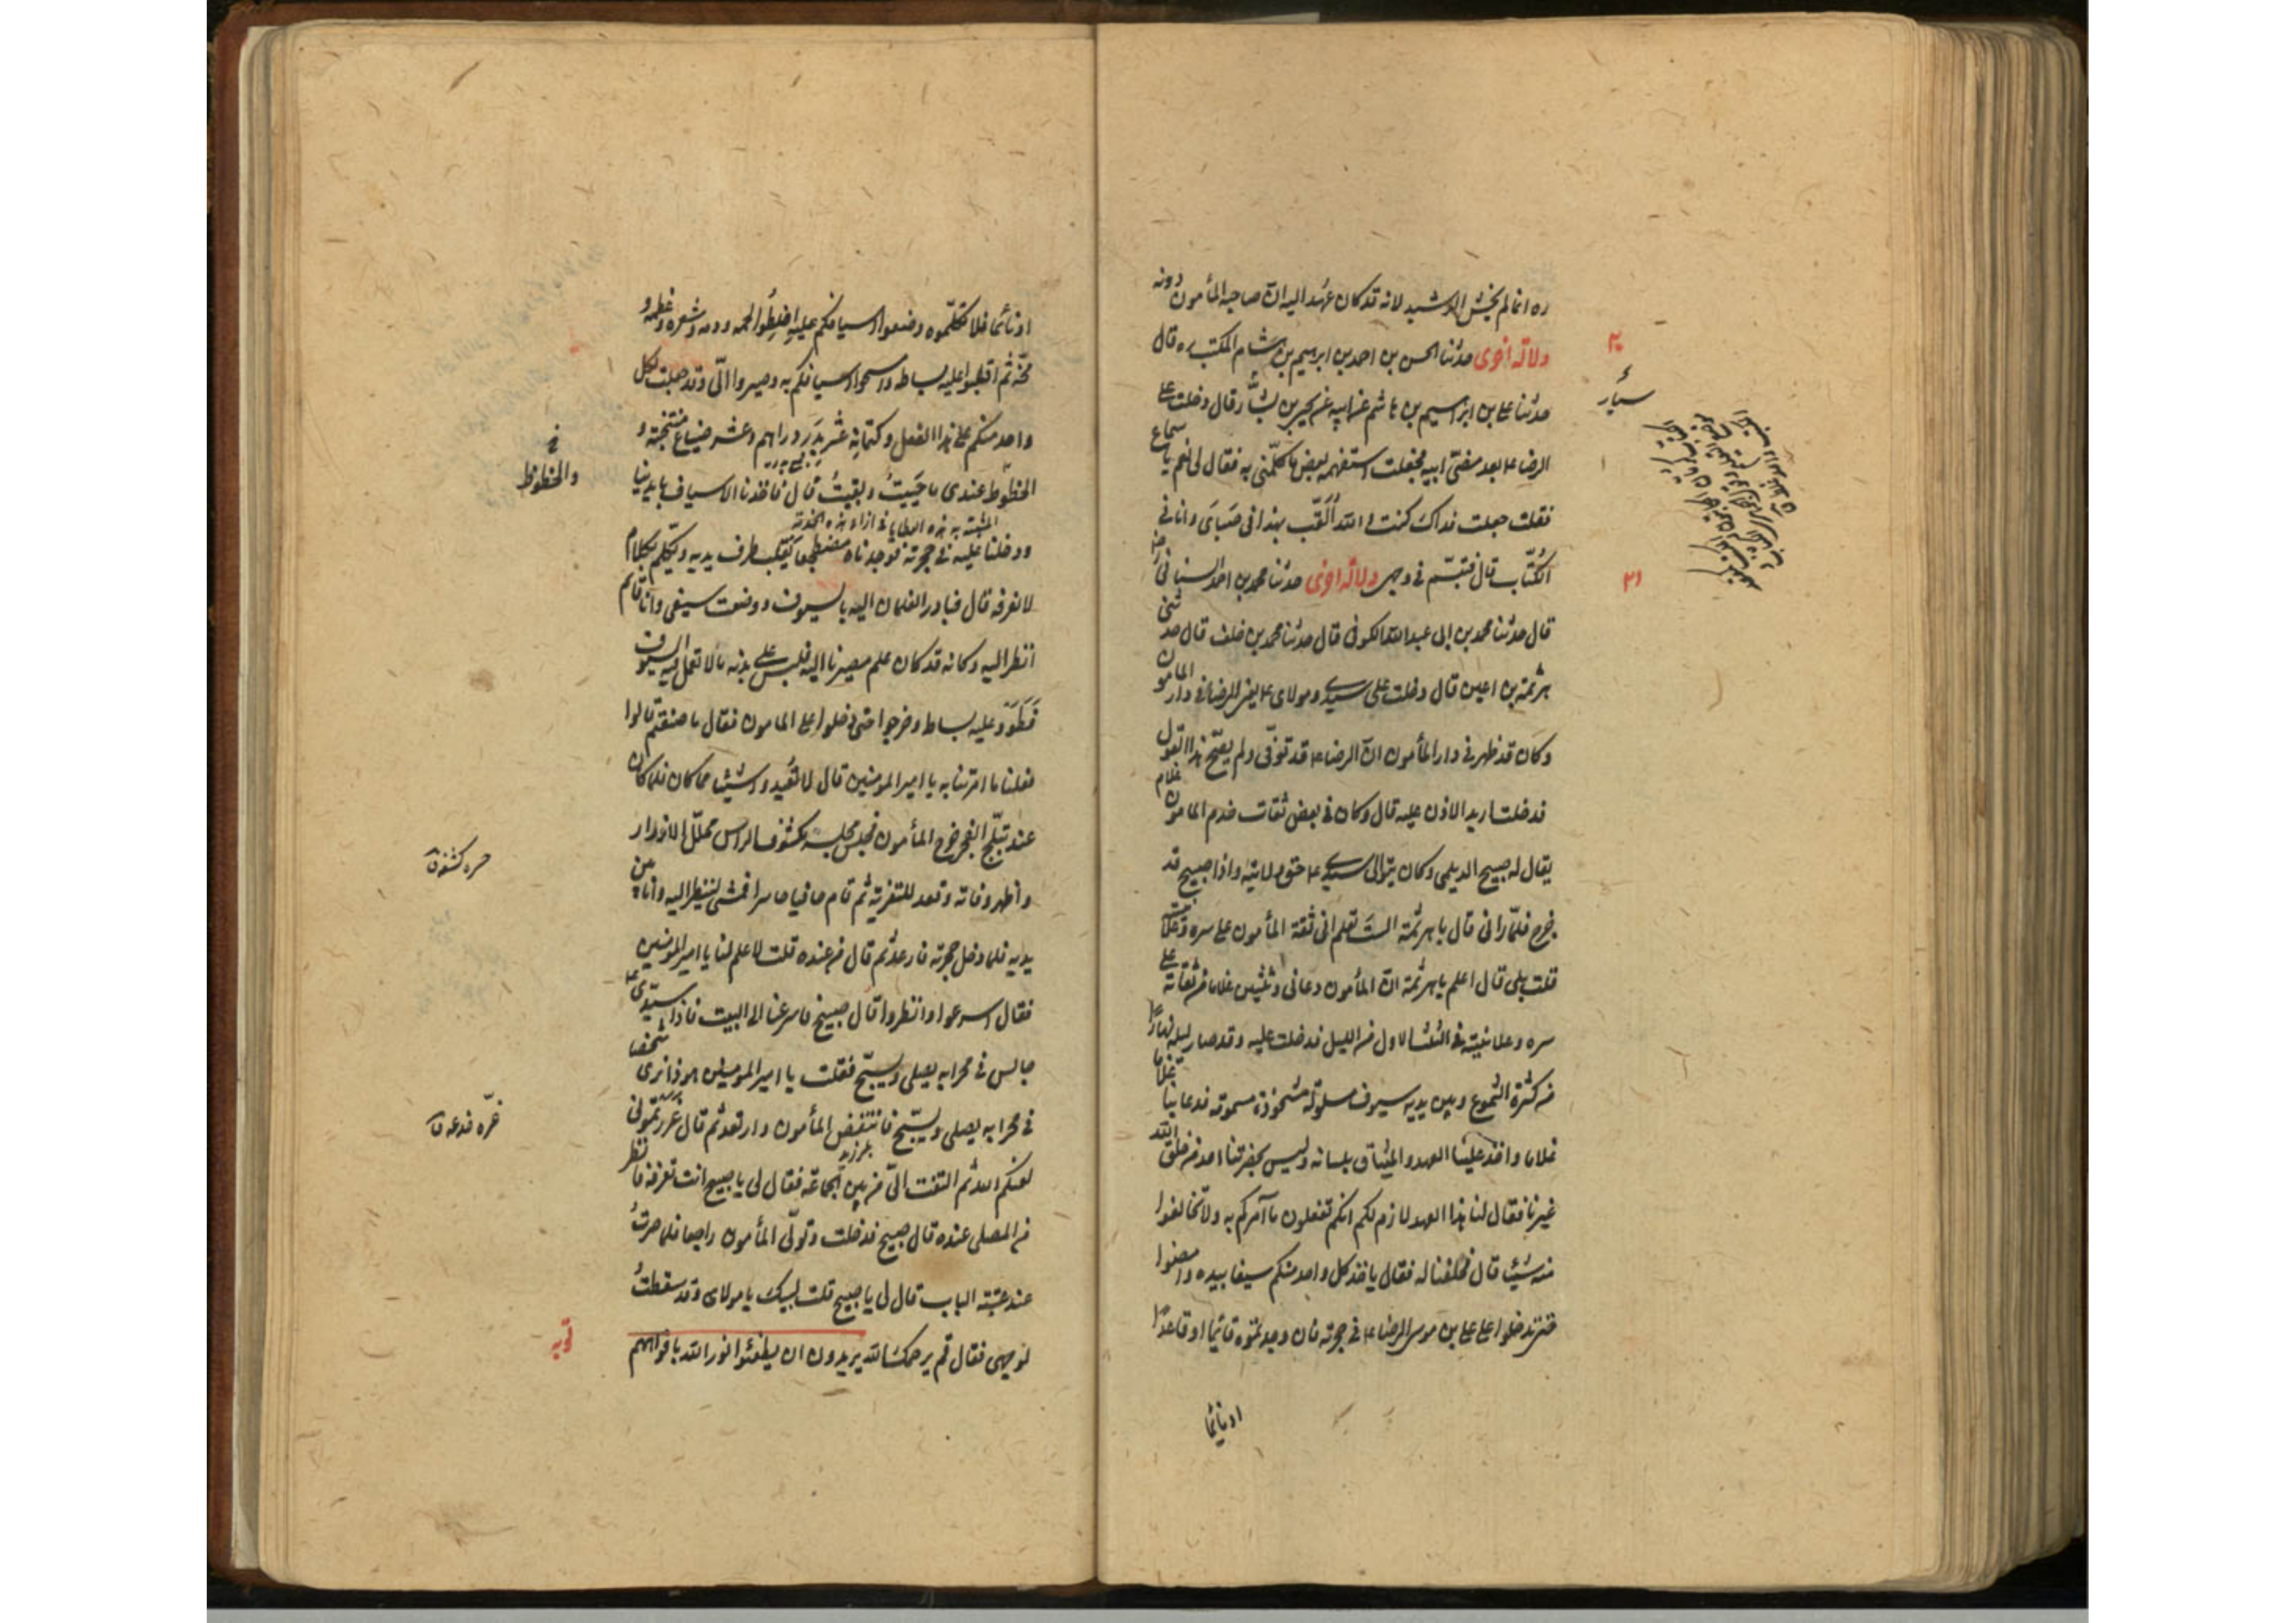 ره انما لم يخش الرشيد لانه قد كان عهد اليه ان صاحبه المأمون دونه
دلالة اخرى حدثنا الحسن بن احمد بن ابرهيم بن هشام المكتب ره قال
حدثنا علي بن ابراهيم بن هاشم عن ابيه عن بحير بن بشّار قال دخلت على
الرضا ع بعد مضى ابيه فجعلت استفهمه بعض ما كلّمنى به فقال لى نعم يا سماع
فقلت جعلت فداك كنت و الله اُلَقّب بهذا فى صباى و انا فى
الكُتّاب قال فتبسّم فى وجهى دلالة اخرى حدثنا محمد بن احمد السنانى رض
قال حدثنا محمد بن ابى عبد الله الكوفى قال حدثنا محمد بن خلف قال حدثنى
هرثمة بن اعين قال دخلت على سيدى و مولاى ع يعنى الرضا فى دار المامون
و كان قد ظهر فى دار المأمون انّ الرضا ع قد توفّى و لم يصحّ هذا القول
فدخلت اريد الاذن عليه قال و كان فى بعض ثقات خدم المامون غلام
يقال له صبيح الديلمى و كان يتوالى سيدى ع حق ولايته و اذا صبيح قد
خرج فلمّا رانى قال يا هرثمة الستَ تعلم انى ثقة المأمون على سره و علانيته
قلت بلى قال اعلم يا هرثمة انّ المأمون دعانى و ثلثين غلاما من ثقاته على
سره و علانيته فى الثلث الاول من الليل فدخلت عليه و قد صار ليله نهارًا
من كثرة الشموع و بين يديه سيوف مسلولة مشحوذة مسمومة فدعا بنا غلاما
غلاما و اخذ علينا العهد و الميثاق بلسانه و ليس بحضرتنا احد من خلق الله
غيرنا فقال لنا هذا العهد لازم لكم انكم تفعلون ما آمركم به و لا تخالفوا
منه شيئا قال فحلفنا له فقال ياخذ كل واحد منكم سيفا بيده و امضوا
حتى تدخلوا على على بن موسى الرضا ع فى حجرته فان وجدتموه قائما او قاعدًا
او نائما
٣٠
سيّار
٣١
او نائما فلا تكلّموه و ضعوا اسيافكم عليه و اخلِطُوا لحمه و دمه و شعره و عظمه و
مخّه ثم اقلبوا عليه بساطه و امسحوا اسيافكم به و صيروا الىّ و قد جعلت لكل
واحد منكم على هذا الفعل و كتمانه عشر بِدَر دراهم و عشر ضياع منتخبة و
الحظوظ عندى ما حَيِيتُ و بقيتُ قال فاخذنا الاسياف بايدينا
و دخلنا عليه فى حجرته فوجدناه مضطجعا يُقَلّب طرف يديه و يتكلم بكلام
لا نعرفه قال فبادر الغلمان اليه بالسيوف و وضعت سيفى و انا قائم
انظر اليه و كانه قد كان علم مصيرنا اليه فلبس على بدنه ما لا تعمل فيه السيوف
فَطَوَوْا عليه بساطه و خرجوا حتى دخلوا على المامون فقال ما صنعتم قالوا
فعلنا ما امرتنا به يا امير المومنين قال لا تُعِيدوا شيئا مما كان فلما كان
عند تبلّج الفجر خرج المأمون فجلس مجلسه مكشوف الراس محلّل الازرار
و اظهر وفاته و قعد للتعزية ثم قام حافيا حاسرا فمشى لينظر اليه و انا بين
يديه فلما دخل حجرته فارعد ثم قال من عنده قلت لا علم لنا يا امير المومنين
فقال اسرعوا و انظروا قال صبيح فاسرعنا الى البيت فاذا سيّدى ع
جالس فى محرابه يصلى و يسبّح فقلت يا امير المومنين هو ذا نرى شخصا
فى محرابه يصلى و يسبّح فانتفض المأمون و ارتعد ثم قال غَرَرتُمونى
لعنكم الله ثم التفت الىّ من بين الجماعة فقال لى يا صبيح انت تعرفه فانظر
من المصلى عنده قال صبيح فدخلت و تولّى المأمون راجعا فلما صرتُ
عند عتبة الباب قال لى يا صبيح قلت لبيك يا مولاى و قد سقطتُ
لوجهى فقال قم يرحمك الله يريدون ان يطفئوا نور الله بافواههم
والحظوظ
خ